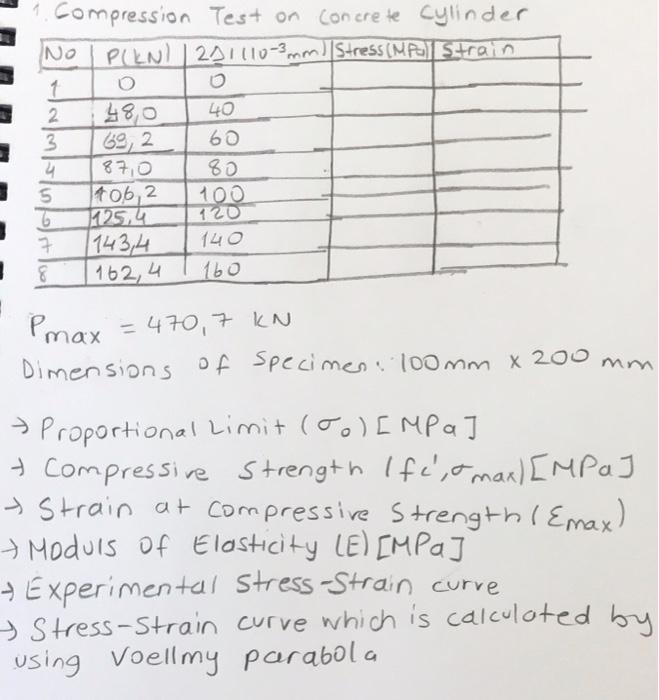 1. Compression Test on Concrete Cylinder
No P(kN) 2Δl(10-³mm) Stress(MPa) Strain
1 0 0
2 48,0 40
3 69,2 60
4 87,0 80
5 106,2 100
6 125,4 120
7 143,4 140
8 162,4 160
Pmax = 470,7 kN
Dimensions of Specimen: 100mm x 200 mm
→ Proportional Limit (σ₀) [MPa]
→ Compressive Strength (fc',σmax) [MPa]
→ Strain at Compressive Strength (Ɛmax)
→ Moduls of Elasticity (E) [MPa]
→ Experimental Stress-Strain curve
→ Stress-Strain curve which is calculated by
using Voellmy parabola